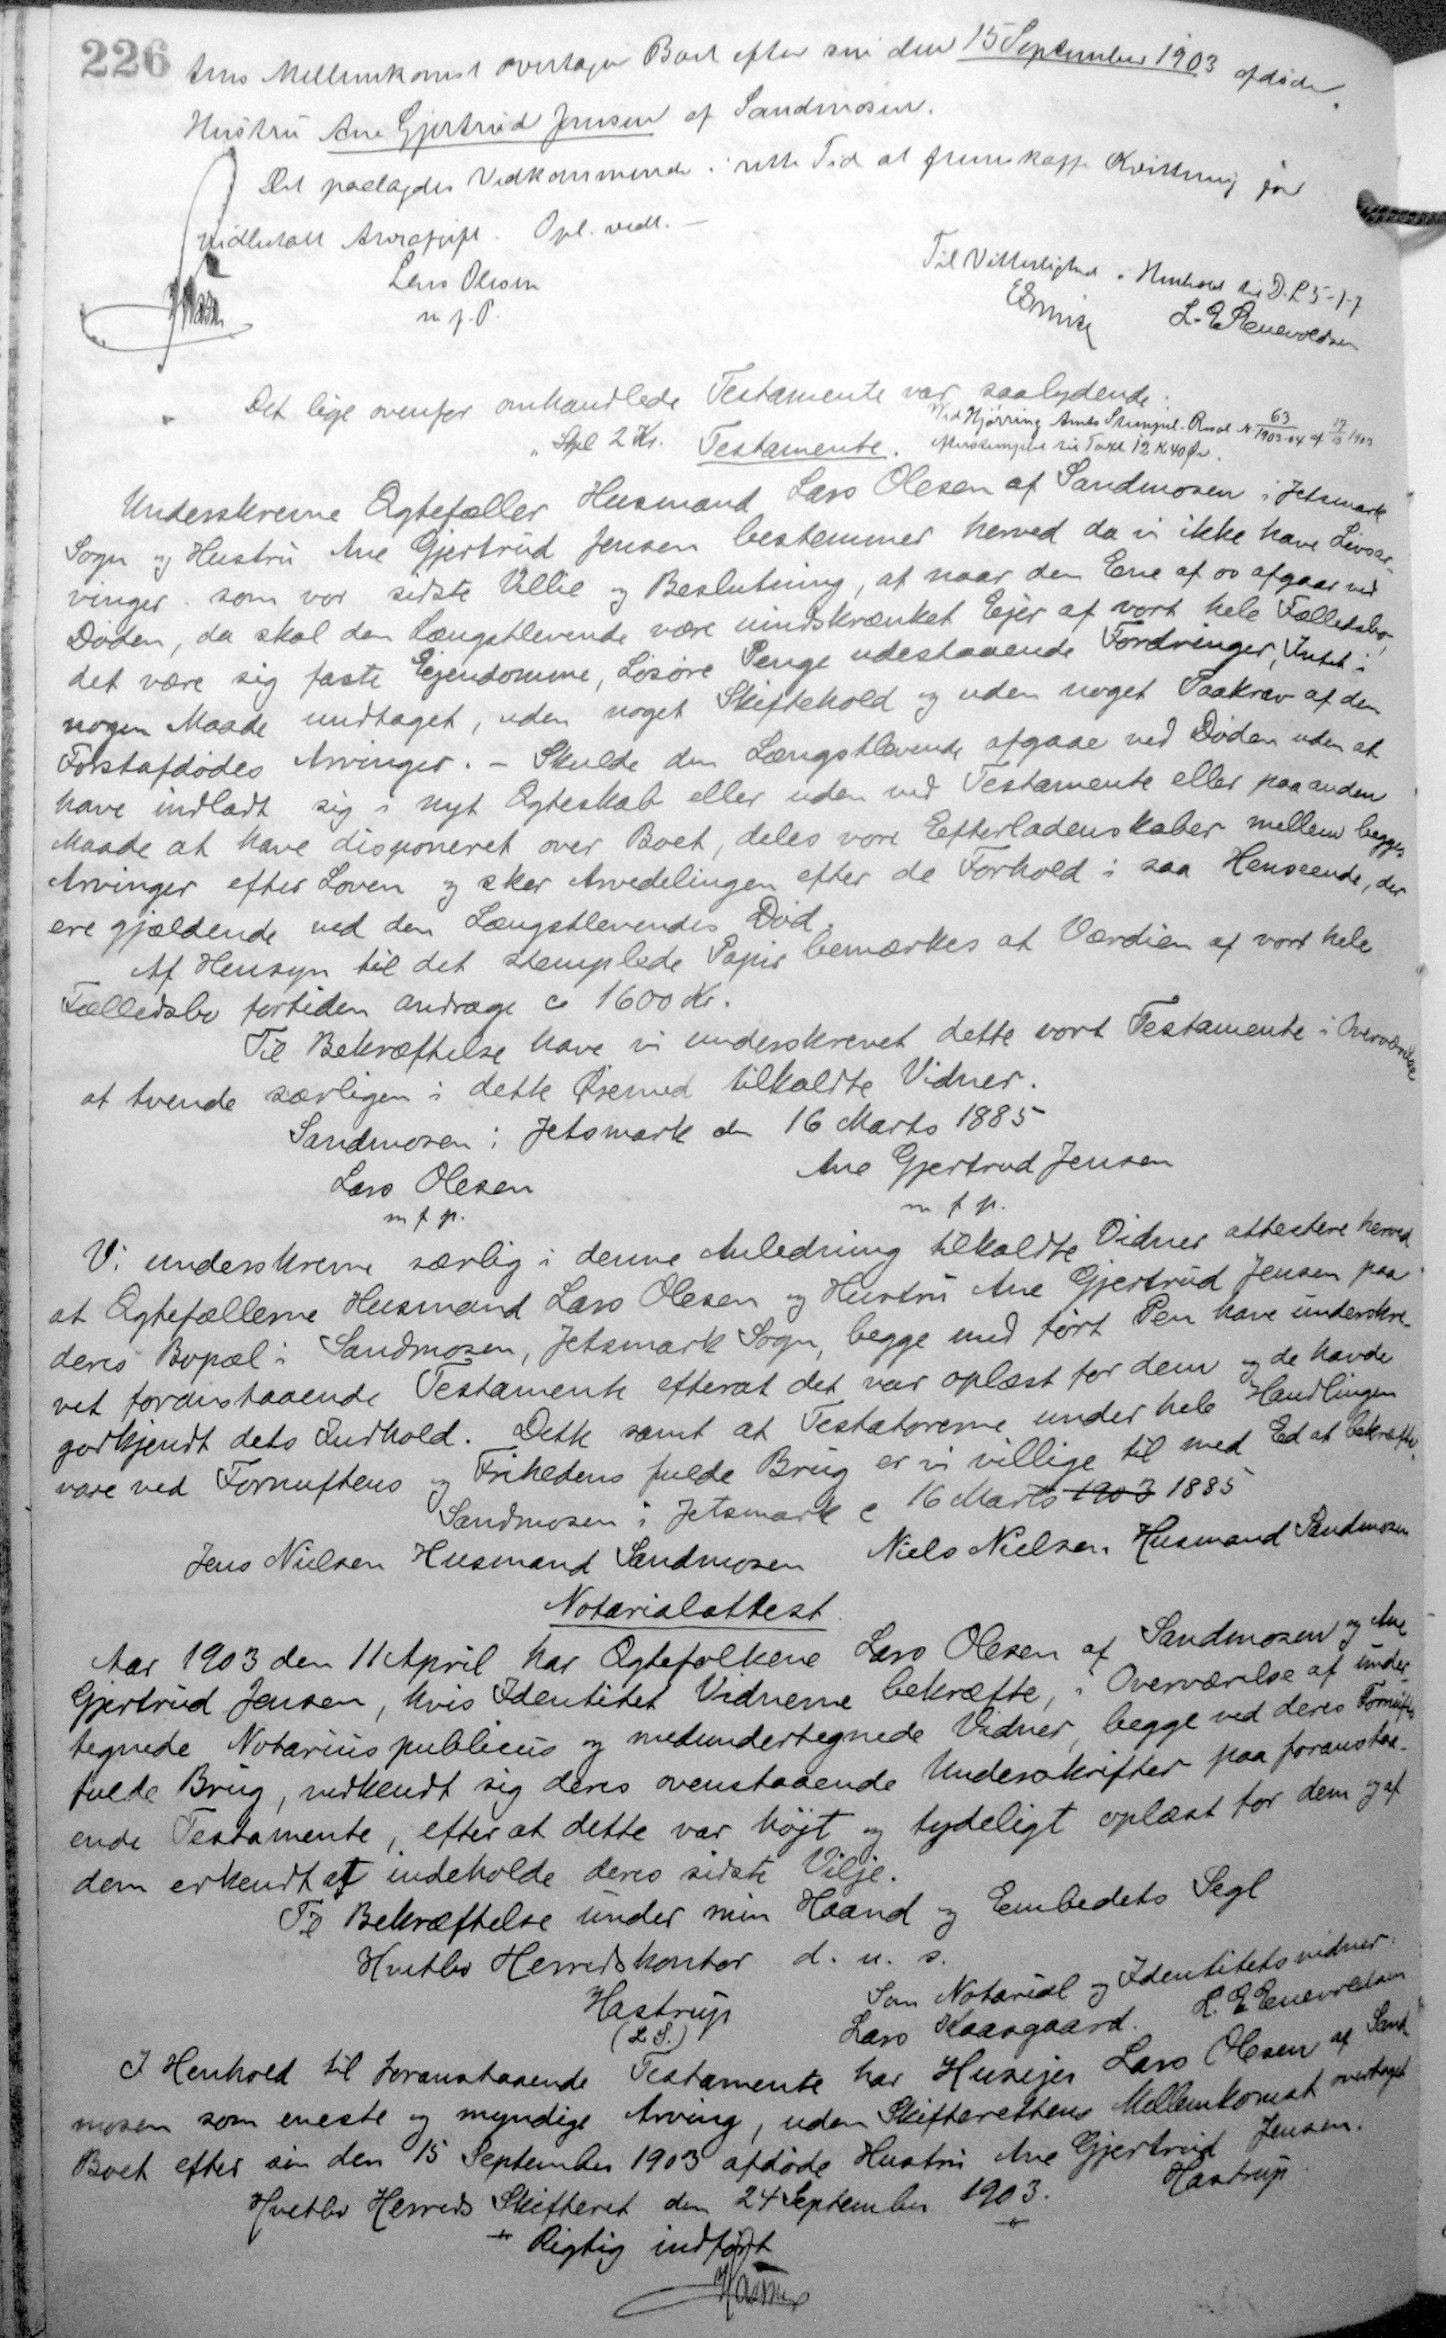 226
tens Mellemkomst overtager Boet efter sin den 15 September 1903 afdøde
Hustru Ane Gjertrud Jensen af Sandmosen.
Det paalagdes Vedkommende i rette Tid at fremskaffe Kvittering for
vidbetalt Arveafgift. Opl. vedt. —
Lars Olesen
m. f. P.
Til Vitterlighed i Henhold til D. L. 5-1-7
L. E. Enevoldsen
Det lige ovenfor omhandlede Testamente var saalydende:
Ved Hjørring Amts Stempel. Resol. N 63/1903-04 af 17/13 1903
efterstemplet til Taxt 12 K 40 Ør.
"Stpl 2 Kr. Testamente.
Underskrevne Ægtefæller Husmand Lars Olesen af Sandmosen i Jetsmark
Sogn og Hustru Ane Gjertrud Jensen bestemmer herved da vi ikke have Livsar-
vinger som vor sidste Villie og Beslutning, at naar den Ene af os afgaar ved
Døden, da skal den Længstlevende være uindskrænket Ejer af vort hele Fælledsbo,
det være sig faste Ejendomme, Løsøre Penge udestaaende Fordringer, Intet i
nogen Maade undtaget, uden noget Skiftehold og uden noget Paakrav af den
Førstafdødes Arvinger. – Skulde den Længstlevende afgaae ved Døden uden at
have indladt sig i nyt Ægteskab eller uden ved Testamente eller paa anden
Maade at have disponeret over Boet, deles vore Eefterladenskaber mellem begges
Arvinger efter Loven og sker Arvedelingen efter de Forhold i saa Henseende, der
ere gjældende ved den Længstlevendes Død.
Af Hensyn til det stemplede Papir bemærkes at Værdien af vort hele
Fælledsbo fortiden andrage ca 1600 Kr.
Til Bekræftelse have vi underskrevet dette vort Testamente i Overværelse
af tvende særligen i dette Øiemed tilkaldte Vidner.
Sandmosen i Jetsmark den 16 Marts 1885
Lars Olesen Ane Gjertrud Jensen
m f p. m f p.
Vi underskrevne særlig i denne Anledning tilkaldte Vidner attestere herved
at Ægtefællerne Husmand Lars Olesen og Hustru Ane Gjertrud Jensen paa
deres Bopæl i Sandmosen, Jetsmark Sogn, begge med ført Pen have underskre-
vet foranstaaende Testamente efterat det var oplæst for dem og de havde
godkjendt dets Indhold. Dette samt at Testatorerne under hele Handlingen
vare ved Fornuftens og Frihedens fulde Brug er vi villige til med Ed at bekræfte.
Sandmosen i Jetsmark d 16 Marts 1903 1885
Jens Nielsen Husmand Sandmosen Niels Nielsen Husmand Sandmosen
Notarialattest.
Aar 1903 den 11 April har Ægtefolkene Lars Olesen af Sandmosen og Ane
Gjertrud Jensen, hvis Identitet Vidnerne bekræfte, i Overværelse af under-
tegnede Notarius publicus og medundertegnede Vidner, begge ved deres Fornufts
fulde Brug, vedkendt sig deres ovenstaaende Underskrifter paa foranstaa-
ende Testamente, efter at dette var højt og tydeligt oplæst for dem og af
dem erkendt at indeholde deres sidste Vilje.
Til Bekræftelse under min Haand og Embedets Segl
Hvetbo Herredskontor d. u. s.
Hastrup
(L S.)
Som Notarial og Identitetsvidner:
Lars Kaasgaard. L. E Enevoldsen
I Henhold til foranstaaende Testamente har Husejer Lars Olesen af Sand-
mosen som eneste og myndige Arving, uden Skifterettens Mellemkomst overtaget
Boet efter sin den 15 September 1903 afdøde Hustru Ane Gjertrud Jensen.
Hvetbo Herreds Skifteret den 24 September 1903. Hastrup
Rigtig indført
Hastrup